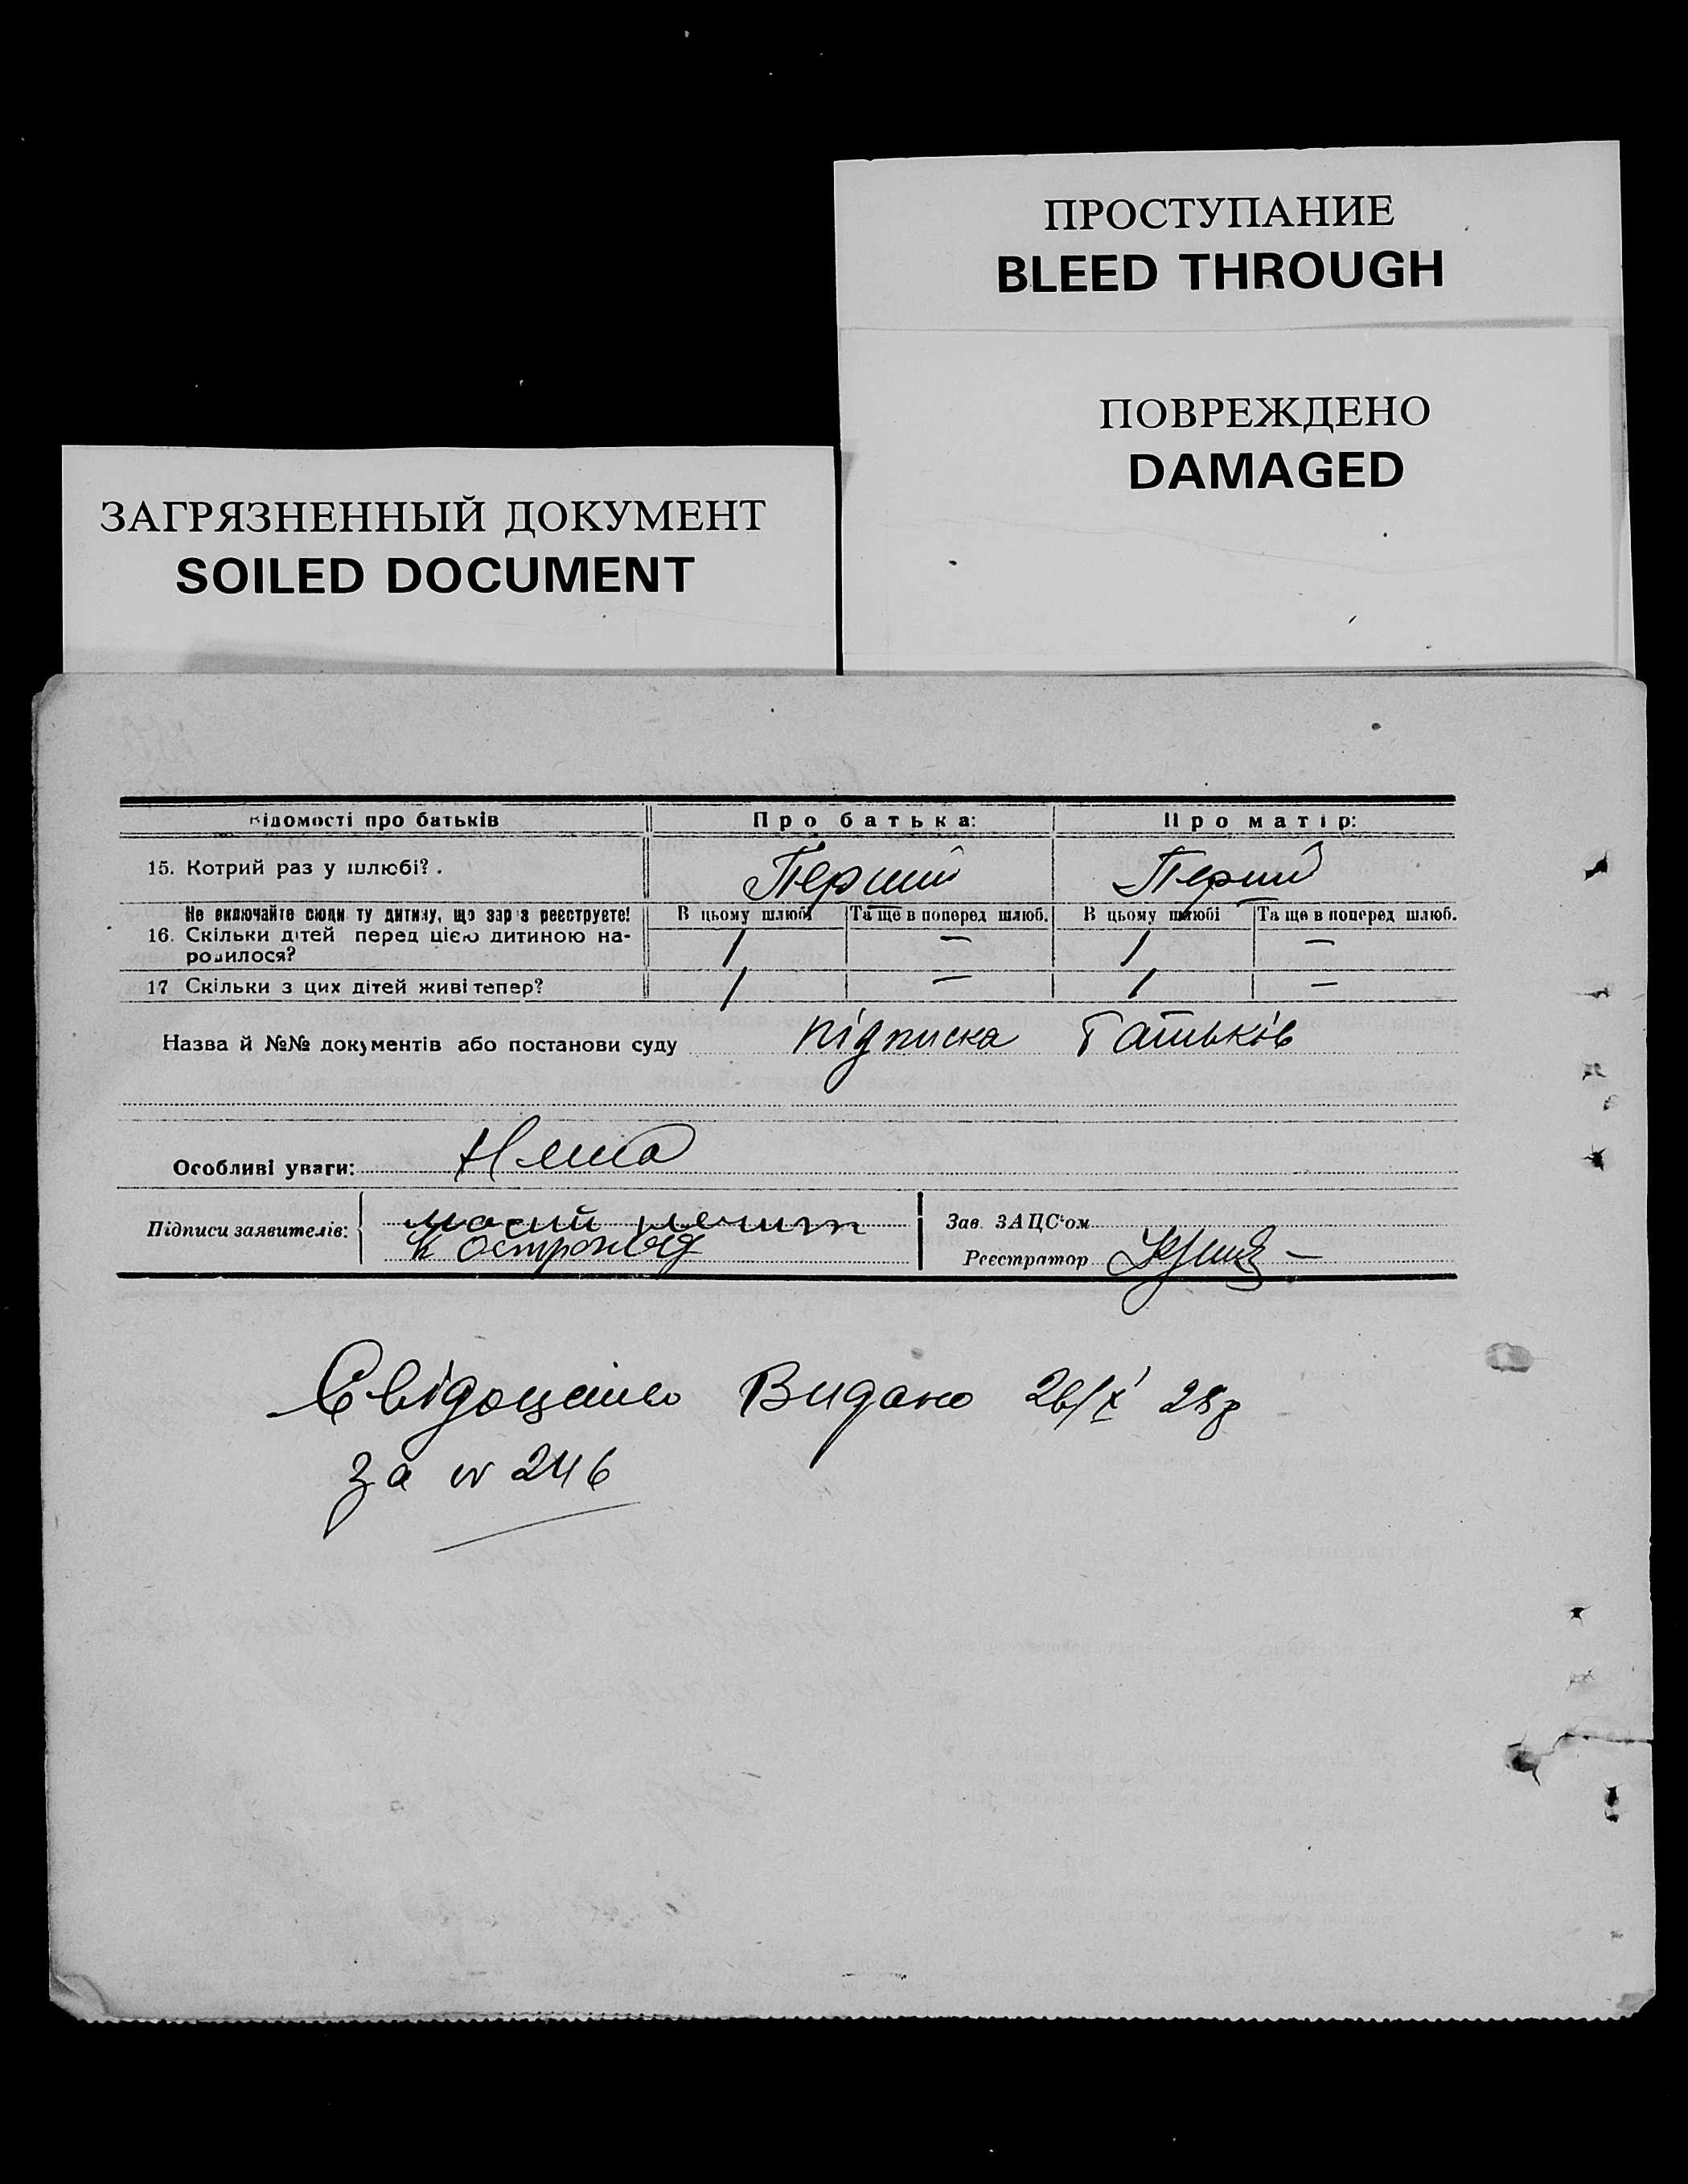 ПРОСТУПАНИЕ
BLEED THROUGH
ПОВРЕЖДЕНО
DAMAGED
ЗАГРЯЗНЕННЫЙ ДОКУМЕНТ
SOILED DOCUMENT
Відомості про батьків Про батька: Про матір:
15. Котрий раз у шлюбі? . Перший Перший
Не включайте сюди ту дитину, що зараз реєструєте! В цьому шлюбі Та ще в поперед шлюб. В цьому шлюбі Та ще в поперед шлюб.
16. Скільки дітей перед цією дитиною на- 1 — 1 —
родилося?
17 Скільки з цих дітей живі тепер? 1 — 1 —
Назва й №№ документів або постанови суду підписка батьків
Особливі уваги: Нема
Підписи заявителів:
К
Зав. ЗАЦС'ом
Реєстратор
Свідоцтво Видано 26/X 28р
за № 246